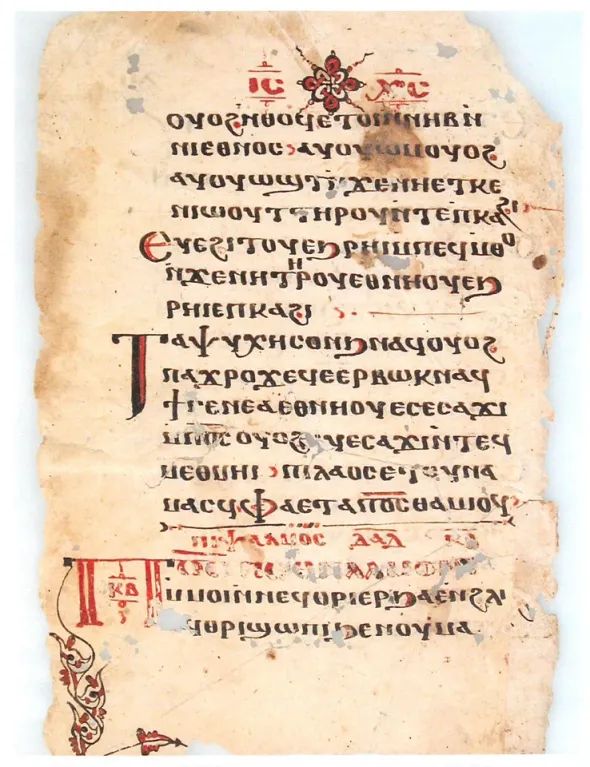 ⲓ̅ⲥ̅ ⲭ̅ⲥ̅
ⲟⲩⲟϩⲛ̀ⲑⲟϥⲉⲧⲟⲓⲛ̀ⲛⲏⲃⲛ̀
ⲛⲓⲉⲑⲛⲟⲥ ⲁⲩⲟⲩⲱⲙⲟⲩⲟϩ
ⲁⲩⲟⲩⲱϣⲧⲛ̀ϫⲉⲛⲏⲉⲧⲕⲉ
ⲛⲓⲱⲟⲩⲧⲧⲏⲣⲟⲩⲛ̀ⲧⲉⲡⲕⲁϩⲓ
ⲉⲩⲉϩⲓⲧⲟⲩⲉϧⲣⲏⲓⲙ̀ⲡⲉϥⲙ̀ⲑⲟ
ⲛ̀ϫⲉⲛⲏⲧⲏⲣⲟⲩⲉⲑⲛⲏⲟⲩⲉϧ
ⲣⲏⲓⲉⲡⲕⲁϩⲓ
ⲧⲁⲯⲩⲭⲏⲥⲟⲛϧⲛⲁϥⲟⲩⲟϩ
ⲡⲁϫⲣⲟϫⲉϥⲉⲉⲣⲃⲱⲕⲛⲁϥ
ϯⲅⲉⲛⲉⲁⲉⲑⲛⲏⲟⲩⲉⲥⲉⲥⲁϫⲓ
ⲙ̀ⲙⲟⲥⲟⲩⲟϩⲉⲩⲉⲥⲁϫⲓⲛ̀ⲧⲉϥ
ⲙⲉⲑⲙⲏⲓ ⲡⲓⲗⲁⲟⲥⲉⲧⲟⲩⲛⲁ
ⲙⲁⲥϥⲫⲁⲉⲧⲁⲡⲟ̅ⲥ̅ⲑⲁⲙⲓⲟϥ
ⲯⲁⲗⲙⲟⲥ ⲇ̅ⲁ̅ⲇ̅
ⲕⲃ
ⲙ̀ⲙⲟⲓⲛ̀ⲛⲉϥⲑⲣⲓⲉⲣϧⲁⲉⲛ̀ϩⲗⲓ
ⲁϥⲑⲣⲓϣⲱⲡⲓϧⲉⲛⲟⲩⲙⲁ